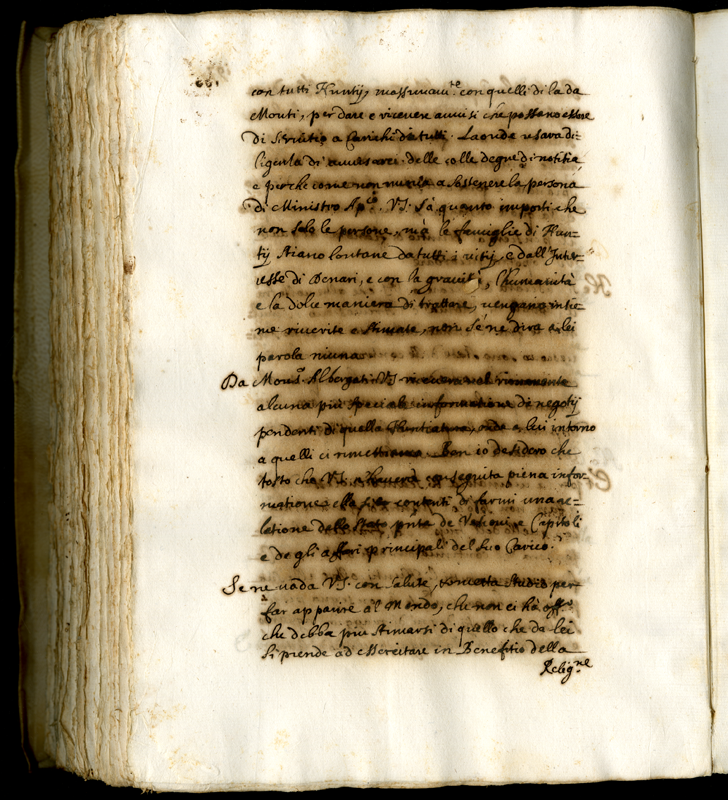 con tutti Nuntij, massimam.te con quelli di la da
Monti, per dare e ricevere avvisi che possano essere
di Servitio a Carichi di tutti. Laonde usarà di=
ligenza di avvisarci delle colle degne di notitia,
e perche come non molto a sostenere la persona
di Ministro Ap.co. V.S. sà quanto importi che
non solo le persone, mà le famiglie di Nun=
tij stiano lontane da tutti i vitij, e dall'Inter=
esse di Denari, e con la gravità, l'humanità
e la dolce maniera di trattare, vengano insie=
me riverite e stimate, non se ne dirà a lei
parola niuna
Da Mons.r Albergati V.S. riceverà
alcuna più speciale informatione di negotij
pendenti di quella Nuntiatura, onde a lui intorno
a quelli ci rimettiamo. Ben io desidero che
tosto che V.S. haverà conseguita piena infor=
matione, ella sia contenti di farmi una re=
letione dello stato pnte de Vescovi, e Capitoli
e de gli affari principali del suo Carico.
Se ne vada V.S. con salute, e metta studio per
far apparire al Mondo, che non ci hà
che debba piu stimarsi di quello che da lei
si prende ad essercitare in Benefitio della
Relig.ne